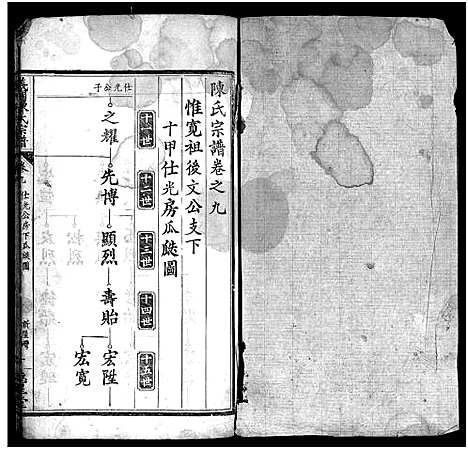 陳氏宗譜卷之九
惟寬祖後文公支下
十甲仕光房瓜瓞圖
十一世
十二世
十三世
十四世
十五世
仕光公子
之耀
先博
顯烈
壽貽
宏陞
宏寬
仕光公房下瓜瓞圖